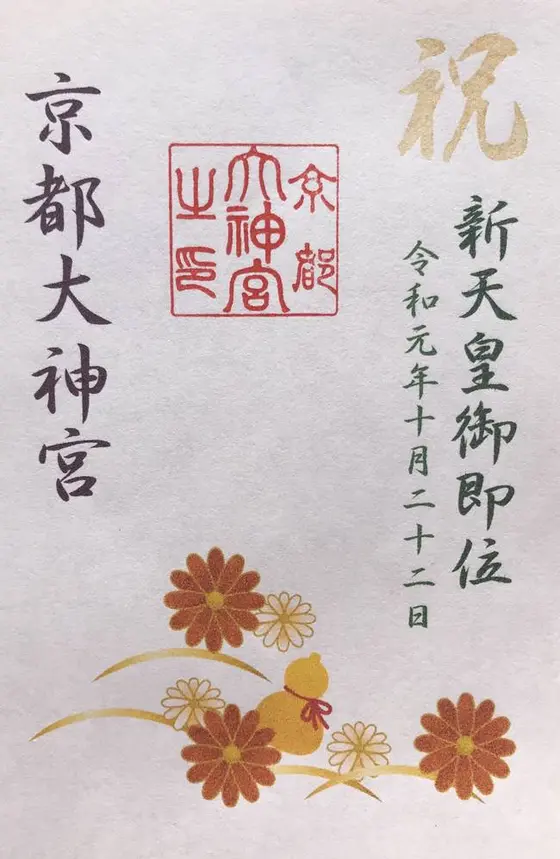 祝
新天皇御即位
令和元年十月二十二日
京都
大神宮
之印
京都大神宮